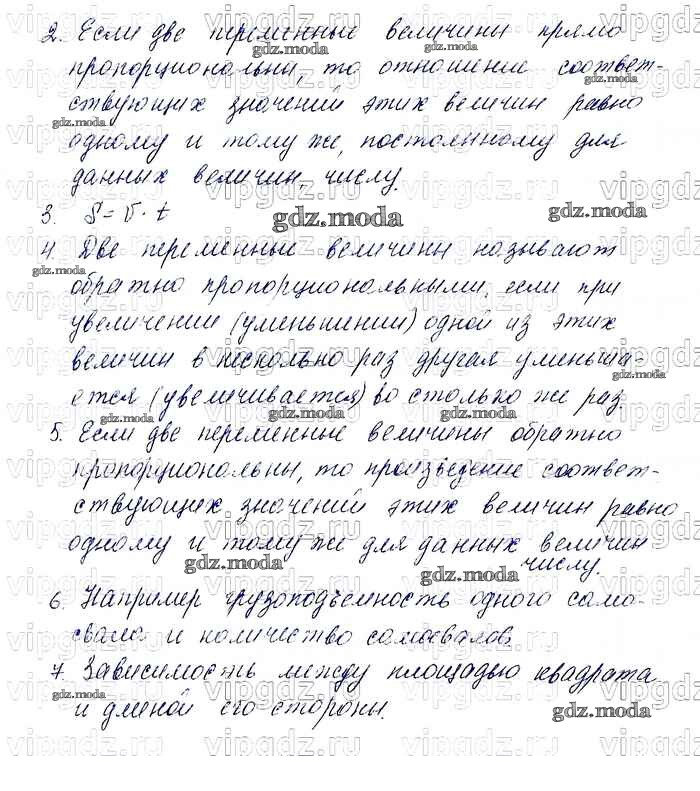 2. Если две переменные величины прямо
пропорциональны, то отношение соответ-
ствующих значений этих величин равно
одному и тому же, постоянному для
данных величин, числу.
3. S = V · t
4. Две переменные величины называют
обратно пропорциональными, если при
увеличении (уменьшении) одной из этих
величин в несколько раз другая уменьша-
ется (увеличивается) во столько же раз.
5. Если две переменные величины обратно
пропорциональны, то произведение соответ-
ствующих значений этих величин равно
одному и тому же для данных величин
числу.
6. Например грузоподъемность одного само-
свала и количество самосвалов.
7. Зависимость между площадью квадрата
и длиной его стороны.
gdz.moda
vipgdz.ru